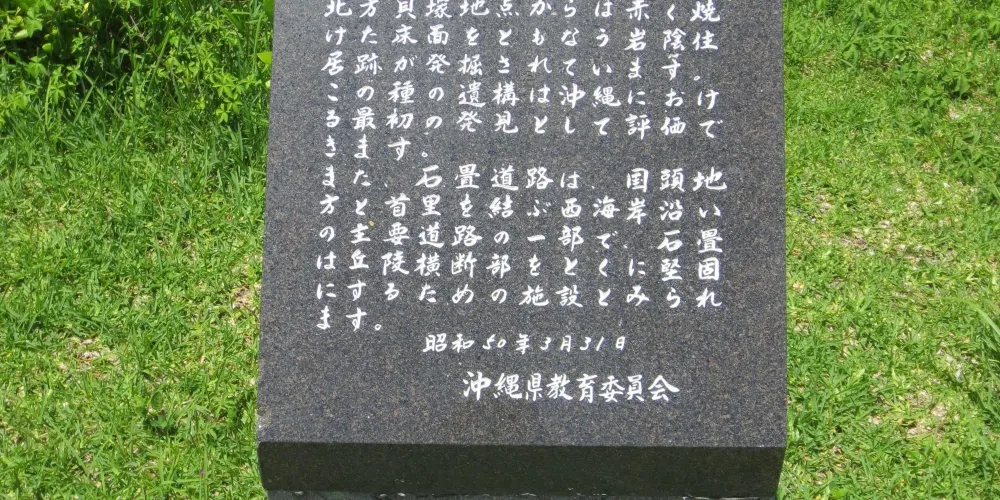 北方貝塚地点からは赤く焼
けた床面をともなう岩陰住
居跡が発掘されています。
この種の遺構は沖縄におけ
る最初の発見として評価で
きます。
また、石畳道路は、国頭地
方と首里を結ぶ西海岸沿い
の主要道路の一部で、石畳
は丘陵横断部をとくに堅固
にするための施設とみられ
ます。
昭和50年3月31日
沖縄県教育委員会